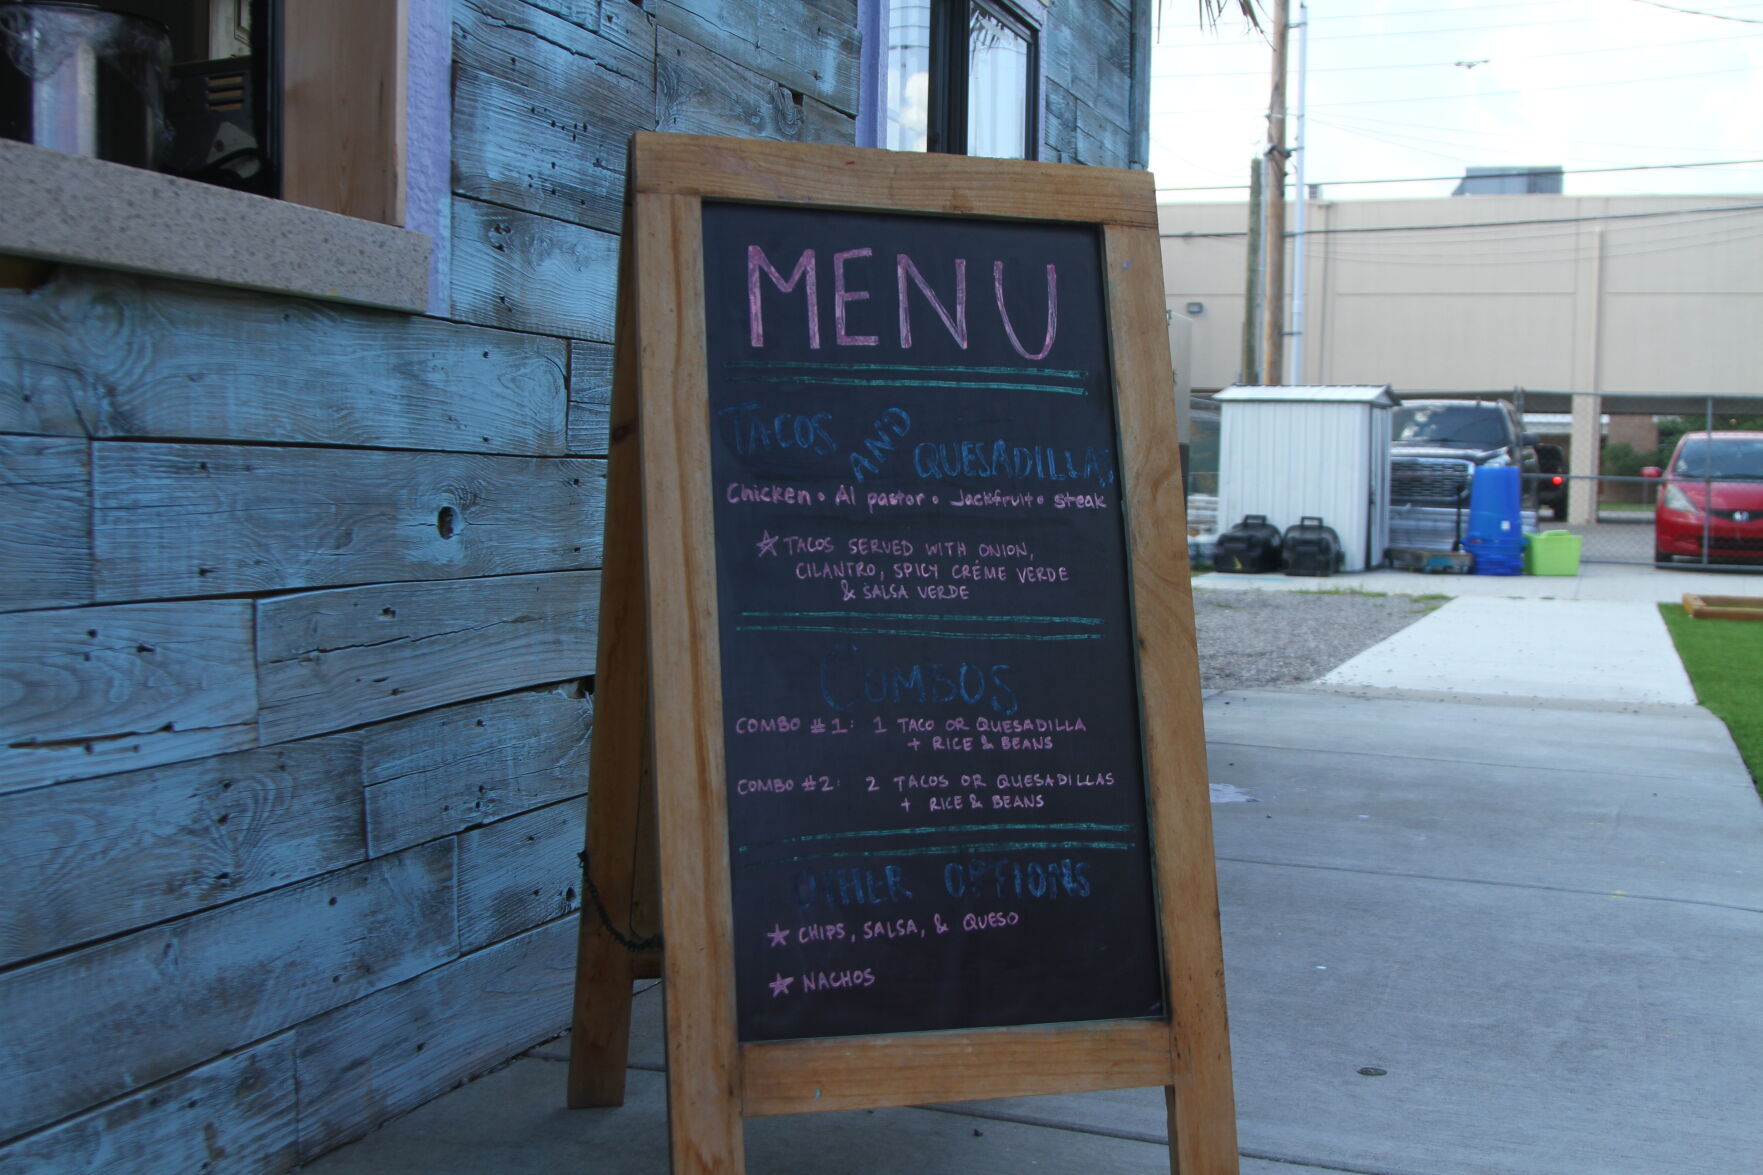 MENU
TACOS AND QUESADILLAS
Chicken • Al pastor • Jackfruit • steak
☆ TACOS SERVED WITH ONION,
CILANTRO, SPICY CRÉME VERDE
& SALSA VERDE
COMBOS
COMBO #1: 1 TACO OR QUESADILLA
+ RICE & BEANS
COMBO #2: 2 TACOS OR QUESADILLAS
+ RICE & BEANS
OTHER OPTIONS
☆ CHIPS, SALSA, & QUESO
☆ NACHOS